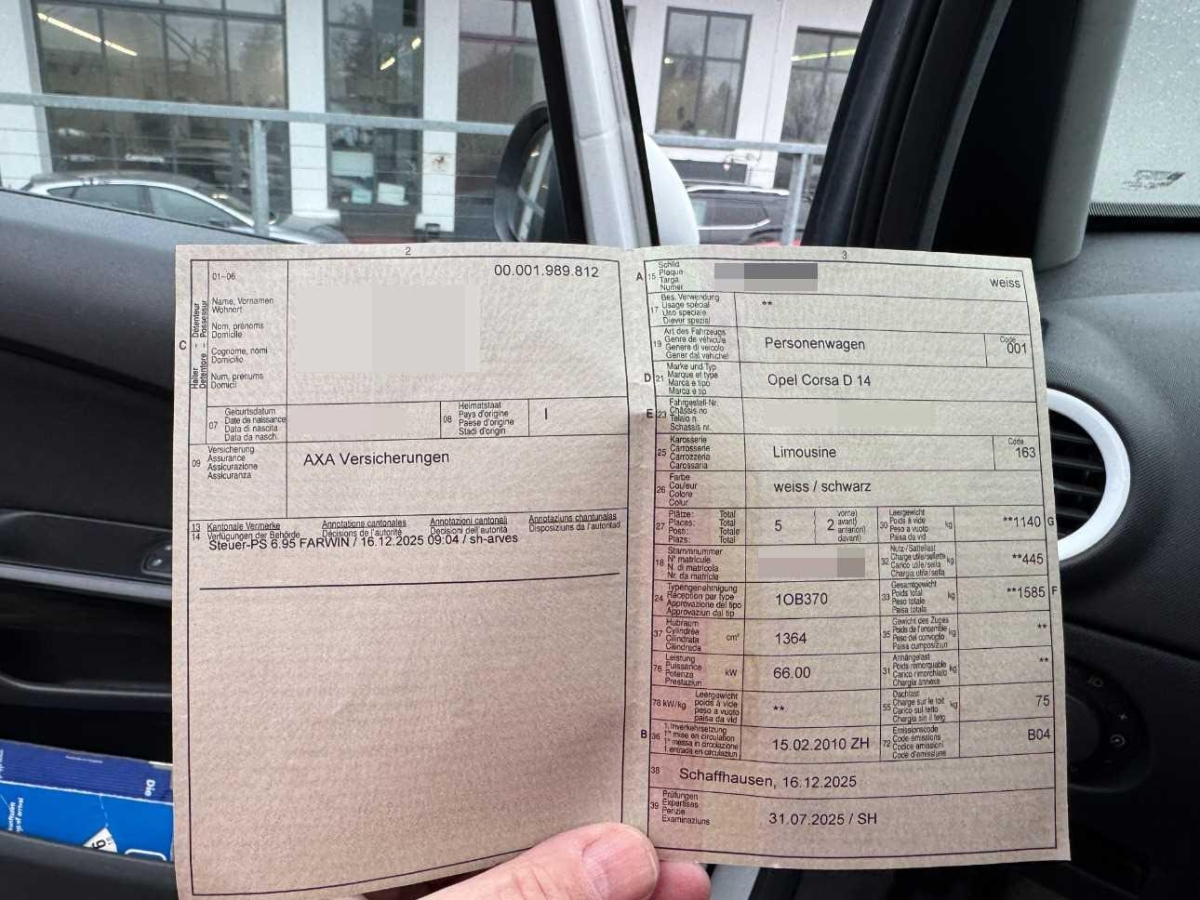 2
01-06
00.001.989.812
C
Halter - Détenteur
Detentore - Possessur
Name, Vornamen
Wohnort
Nom, prénoms
Domicile
Cognome, nomi
Domicilio
Num, prenums
Domicil
07
Geburtsdatum
Date de naissance
Data di nascita
Data da nasch.
08
Heimatstaat
Pays d'origine
Paese d'origine
Stadi d'origin
I
09
Versicherung
Assurance
Assicurazione
Assicuranza
AXA Versicherungen
13
14
Kantonale Vermerke
Verfügungen der Behörde
Annotations cantonales
Décisions de l'autorité
Annotazioni cantonali
Decisioni dell'autorità
Annotaziuns chantunales
Disposiziuns da l'autoritad
Steuer-PS 6.95 FARWIN / 16.12.2025 09:04 / sh-arves
3
A 15
Schild
Plaque
Targa
Numer
weiss
17
Bes. Verwendung
Usage spécial
Uso speciale
Diever spezial
**
19
Art des Fahrzeugs
Genre de véhicule
Genere di veicolo
Gener dal vehichel
Personenwagen
Code
001
D 21
Marke und Typ
Marque et type
Marca e tipo
Marca e tip
Opel Corsa D 14
E 23
Fahrgestell-Nr.
Châssis no
Telaio n.
Schassis nr.
25
Karosserie
Carrosserie
Carrozzeria
Carossaria
Limousine
Code
163
26
Farbe
Couleur
Colore
Colur
weiss / schwarz
27
Plätze: Total
Places: Total
Posti: Totale
Plazs: Total
5
2
vorne)
avant)
anteriori)
davant)
30
Leergewicht
Poids à vide
Peso a vuoto
Paisa da vid
kg
**1140 G
18
Stammnummer
N° matricule
N. di matricola
Nr. da matricla
32
Nutz-/Sattellast
Charge utile/sellette
Carico utile/sella
Chargia utila/sella
kg
**445
24
Typengenehmigung
Réception par type
Approvazione del tipo
Approvaziun dal tip
1OB370
33
Gesamtgewicht
Poids total
Peso totale
Paisa totala
kg
**1585 F
37
Hubraum
Cylindrée
Cilindrata
Cilindrada
cm³
1364
35
Gewicht des Zuges
Poids de l'ensemble
Peso del convoglio
Paisa cumposiziun
kg
**
76
Leistung
Puissance
Potenza
Prestaziun
kW
66.00
31
Anhängelast
Poids remorquable
Carico rimorchiato
Chargia annexa
kg
**
78 kW/kg
Leergewicht
poids à vide
peso a vuoto
paisa da vid
**
55
Dachlast
Charge sur le toit
Carico sul tetto
Chargia sin il tetg
kg
75
B 36
1. Inverkehrsetzung
1re mise en circulation
1a messa in circolazione
1. entrada en circulaziun
15.02.2010 ZH
72
Emissionscode
Code émissions
Codice emissioni
Code d'emissiuns
B04
38
Schaffhausen, 16.12.2025
39
Prüfungen
Expertises
Perizie
Examinaziuns
31.07.2025 / SH
Die